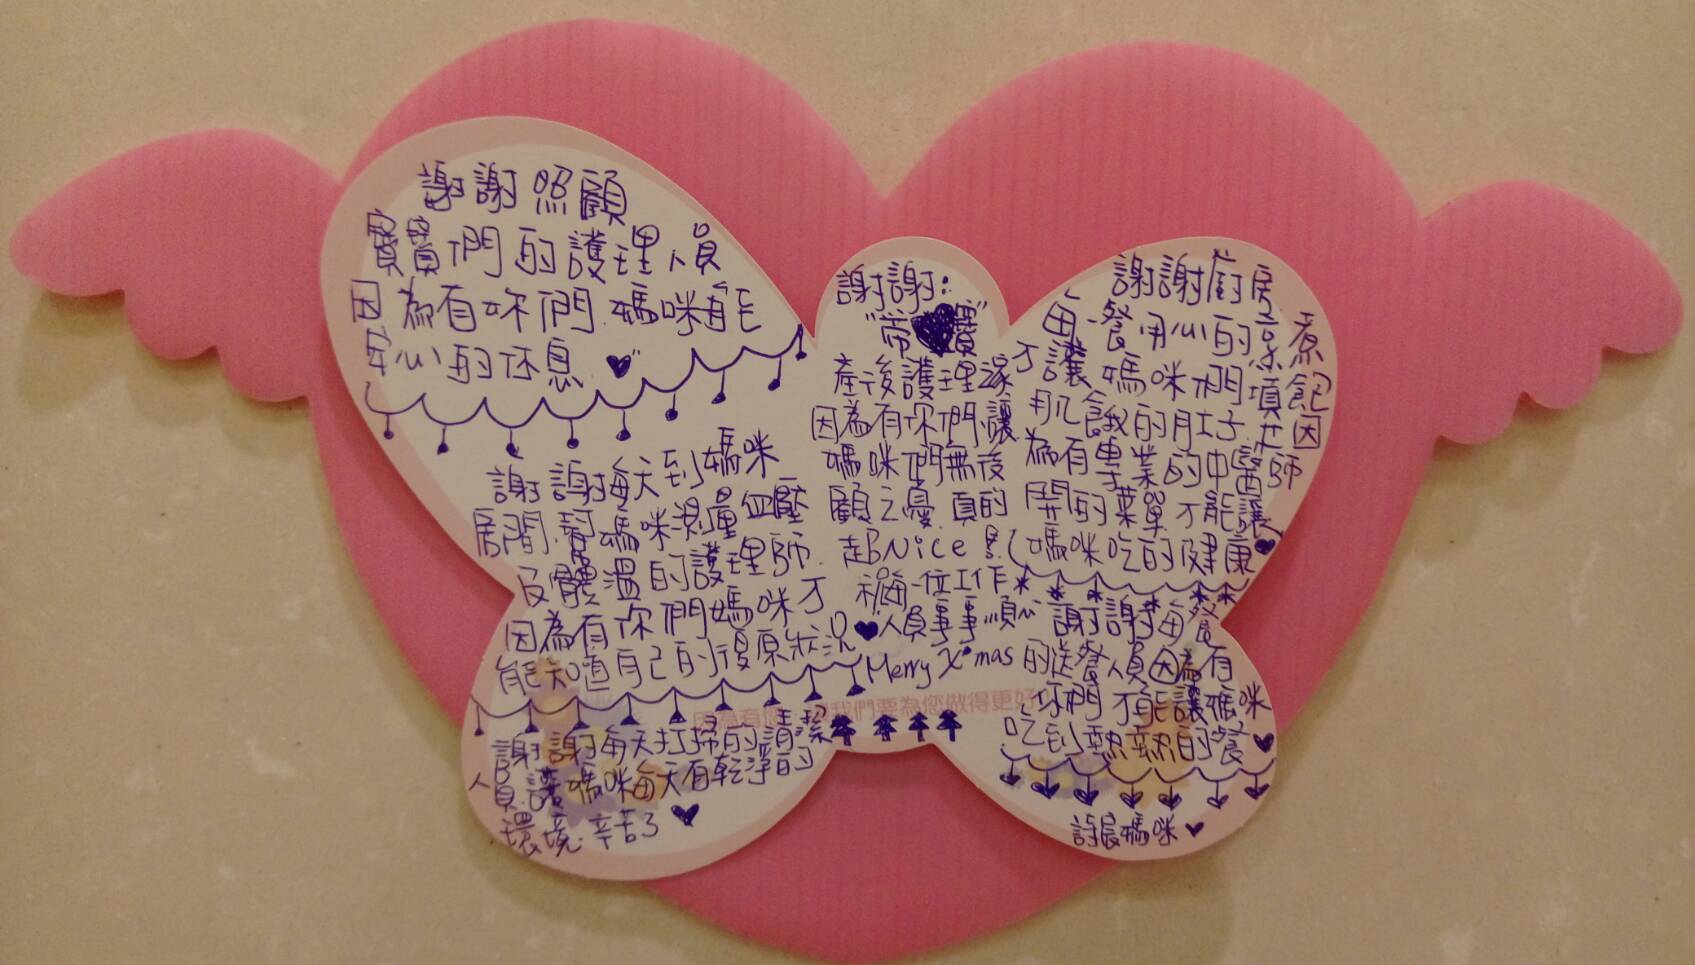 謝謝照顧
寶寶們的護理人員
因為有妳們.媽咪能
安心的休息
謝謝每天到媽咪
房間.幫媽咪測量血壓
及體溫的護理師.
因為有你們媽咪才
能知道自己的復原狀況
謝謝每天打掃的清潔
人員.讓媽咪每天有乾淨的
環境.辛苦了
謝謝:
寶"
產後護理
因為有你們.讓
媽咪們無後
顧之憂.真的
超Nice
祝每一位工作
人員事事順心
Merry X'mas
因為有您 我們要為您做得更好
謝謝廚房
每一餐用心的烹煮
才讓媽咪們
的月子.因
為有專業的中醫師
開的菜單.才能讓
媽咪吃的健康
謝謝每餐
的送餐人員因為有
妳們才能讓媽咪
吃到熱熱的餐
媽咪